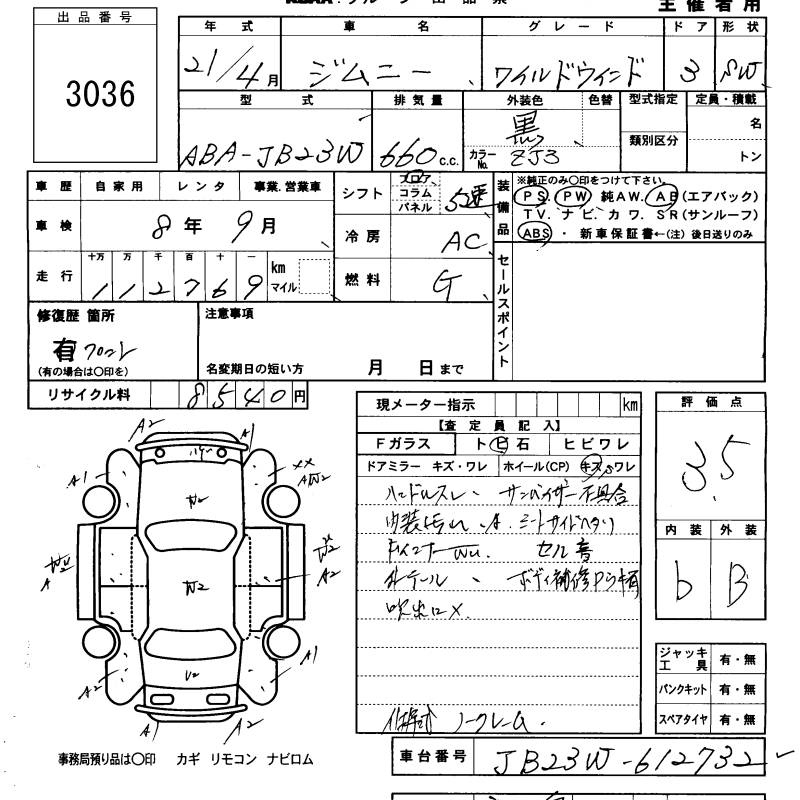 主催者用
出品番号
3036
年式 車名 グレード ドア 形状
21/4月 ジムニー ワイルドウィンド 3 SW
型式 排気量 外装色 色替 型式指定 定員・積載
ABA-JB23W 660c.c. 黒 カラーNo. ZJ3 類別区分 名
トン
車歴 自家用 レンタ 事業.営業車
車検 8年 9月
走行 十万 万 千 百 十 一 km
112769 マイル
シフト フロア コラム パネル 5速
冷房 AC
燃料 G
装備品
※純正のみ〇印をつけて下さい。
PS. PW 純AW. AB(エアバック)
TV. ナビ. カワ. SR(サンルーフ)
ABS ・ 新車保証書←(注) 後日送りのみ
セールスポイント
修復歴 箇所
有 フロント
(有の場合は〇印を)
注意事項
名変期日の短い方 月 日まで
リサイクル料 8540円
現メーター指示 km
【査定員記入】
Fガラス トビ石 ヒビワレ
ドアミラー キズ・ワレ ホイール(CP) キズ・ワレ
ハンドルスレ、サンバイザー不具合
内装汚れ、A. シートサイドヘタリ
セル音
外テール、ボディ補修
吹出口×
ノークレーム.
評価点
3.5
内装 外装
b B
ジャッキ工具 有・無
パンクキット 有・無
スペアタイヤ 有・無
A2 A1
A1 W2 ××
AW2
W2 W2
A A2
A2 V2 A1
A1 A2
事務局預り品は〇印 カギ リモコン ナビロム
車台番号 JB23W-612732